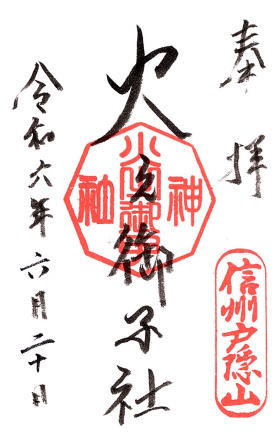 奉拝
信州戸隠山
火之御子社
火之御子
神社
令和六年六月二十日